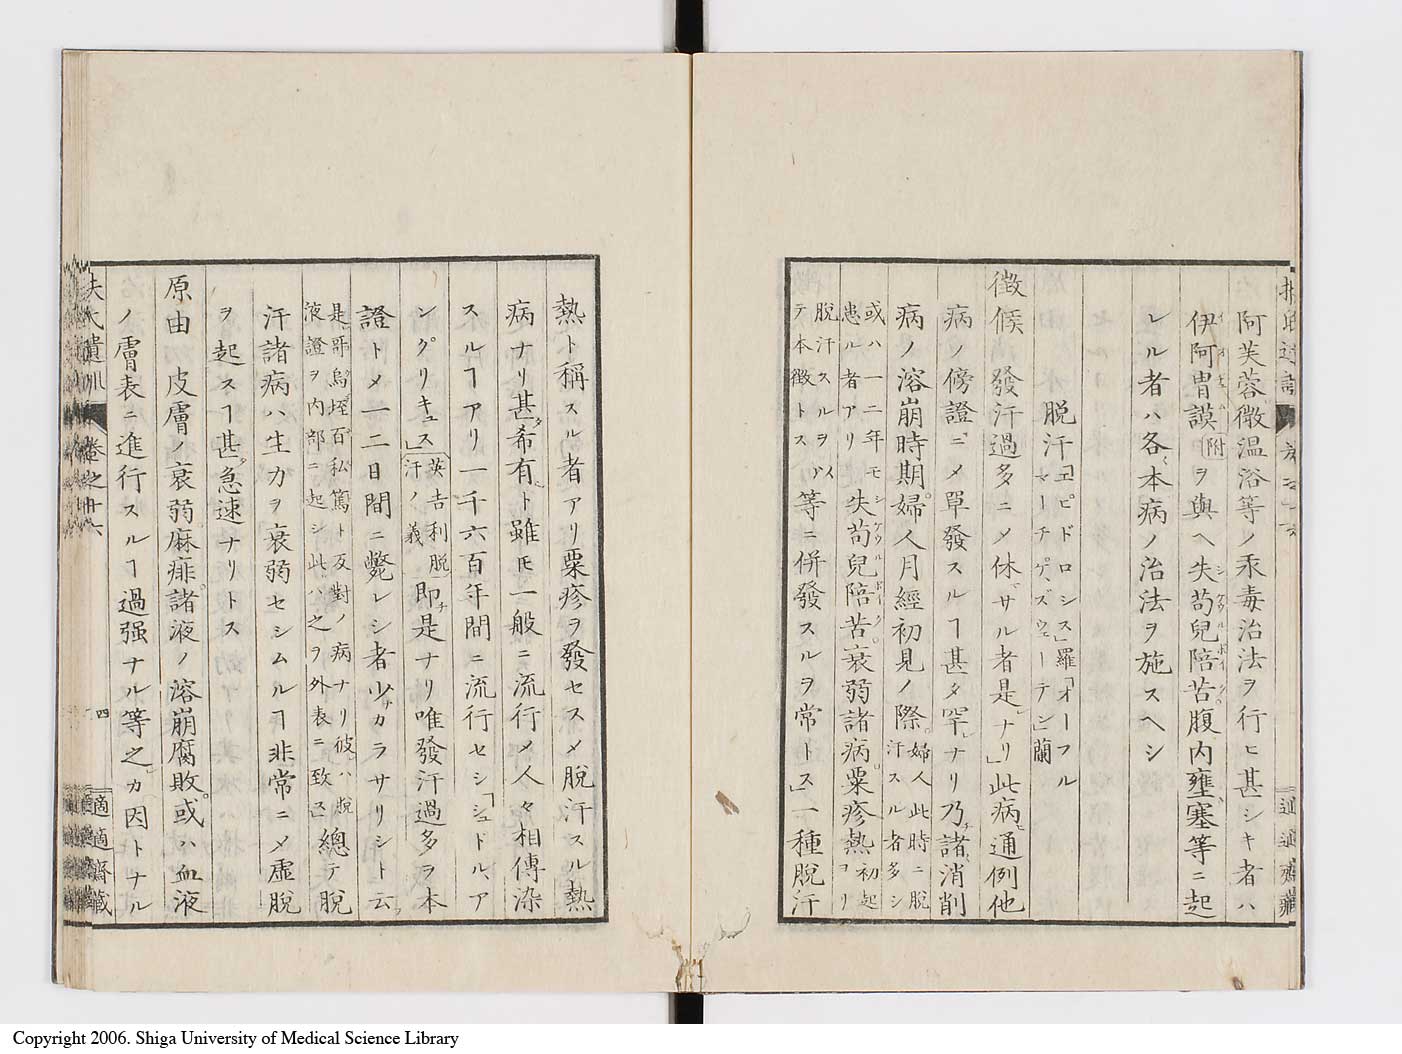 阿芙蓉微温浴等ノ汞毒治法ヲ行ヒ甚シキ者ハ
伊阿冑謨附ヲ與ヘ失苟兒陪苦腹内壅塞等ニ起
レル者ハ各本病ノ治法ヲ施スヘシ
脱汗「ヱピドロシス」羅「オーフル
マーチゲ、ズウェーテン」蘭
徴候 發汗過多ニメ休サル者是ナリ」此病通例他
病ノ傍證ニメ單發スルヿ甚タ罕ナリ乃チ諸消削
病ノ溶崩時期婦人月經初見ノ際婦人此時ニ脱
汗スル者多シ
或ハ一二年モ
患ル者アリ失苟兒陪苦衰弱諸病粟疹熱初起ヨリ
脱汗スルヲ以
テ本徴トス等ニ併發スルヲ常トス」一種脱汗
熱ト稱スル者アリ粟疹ヲ發セスメ脱汗スル熱
病ナリ甚タ希有ト雖𪜈一般ニ流行メ人々相傳染
スルヿアリ一千六百年間ニ流行セシ「シュドル、ア
ングリキュス」英吉利脱
汗ノ義即チ是ナリ唯發汗過多ヲ本
證トメ一二日間ニ斃レシ者少カラサリシト云フ
是哥烏埵百私篤ト反對ノ病ナリ彼ハ脱
液證ヲ内部ニ起シ此ハ之ヲ外表ニ致ス總テ脱
汗諸病ハ生力ヲ衰弱セシムルヿ非常ニメ虚脱
ヲ起スヿ甚急速ナリトス
原由 皮膚ノ衰弱麻痱諸液ノ溶崩腐敗或ハ血液
ノ膚表ニ進行スルヿ過强ナル等之カ因トナル
扶氏遺訓 卷之廿六 四 適適齋藏
Copyright 2006. Shiga University of Medical Science Library